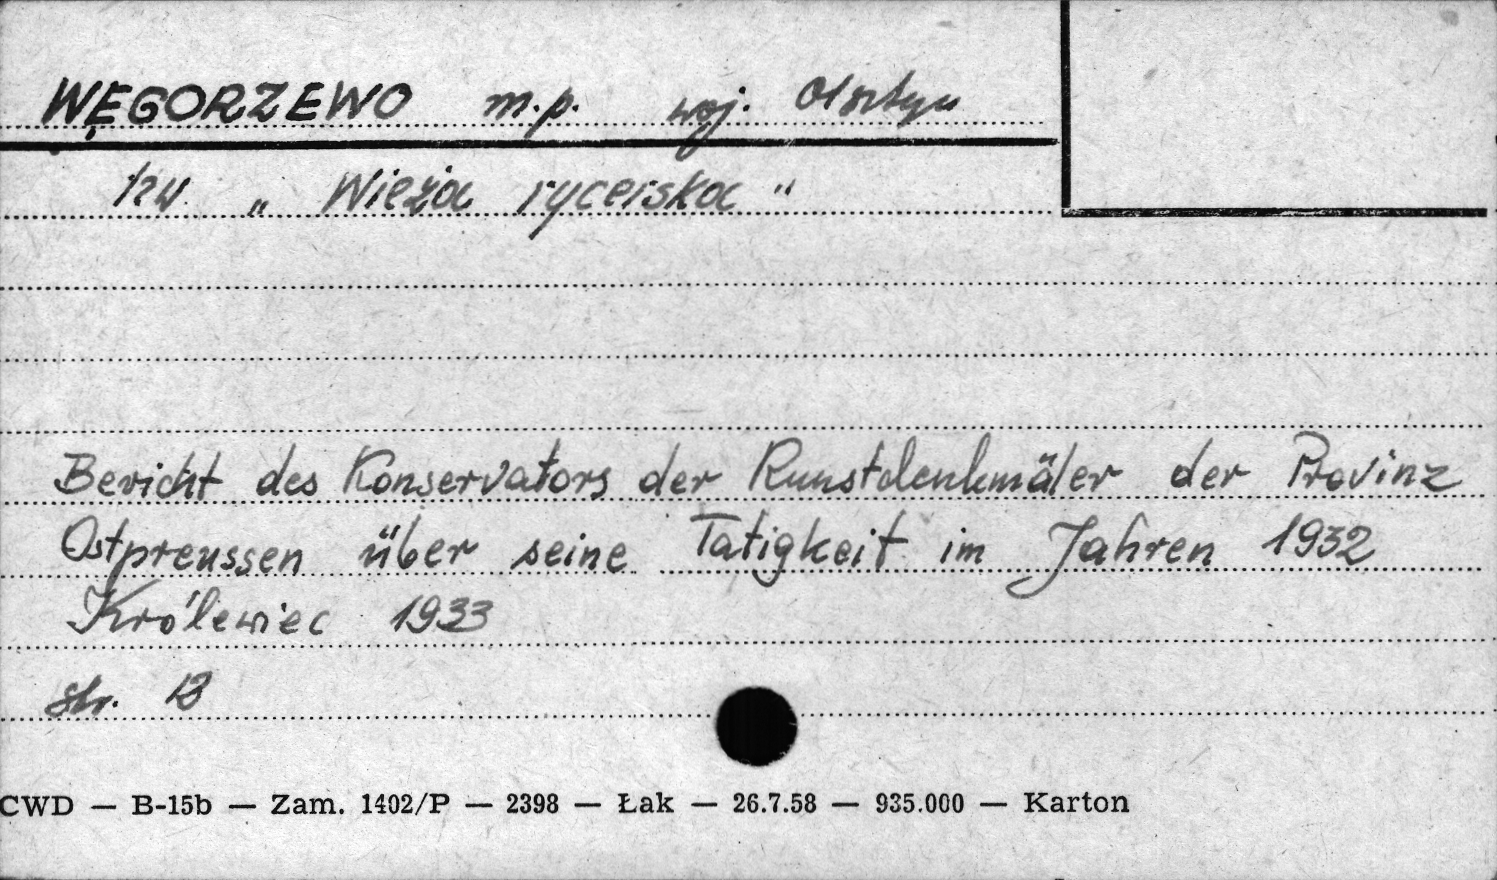 WĘGORZEWO m.p. woj. Olsztyn
tzw. „Wieża rycerska"
Bericht des Konservators der Kunstdenkmäler der Provinz
Ostpreussen über seine Tatigkeit im Jahren 1932
Królewiec 1933
str. 13
CWD — B-15b — Zam. 1402/P — 2398 — Łak — 26.7.58 — 935.000 — Karton